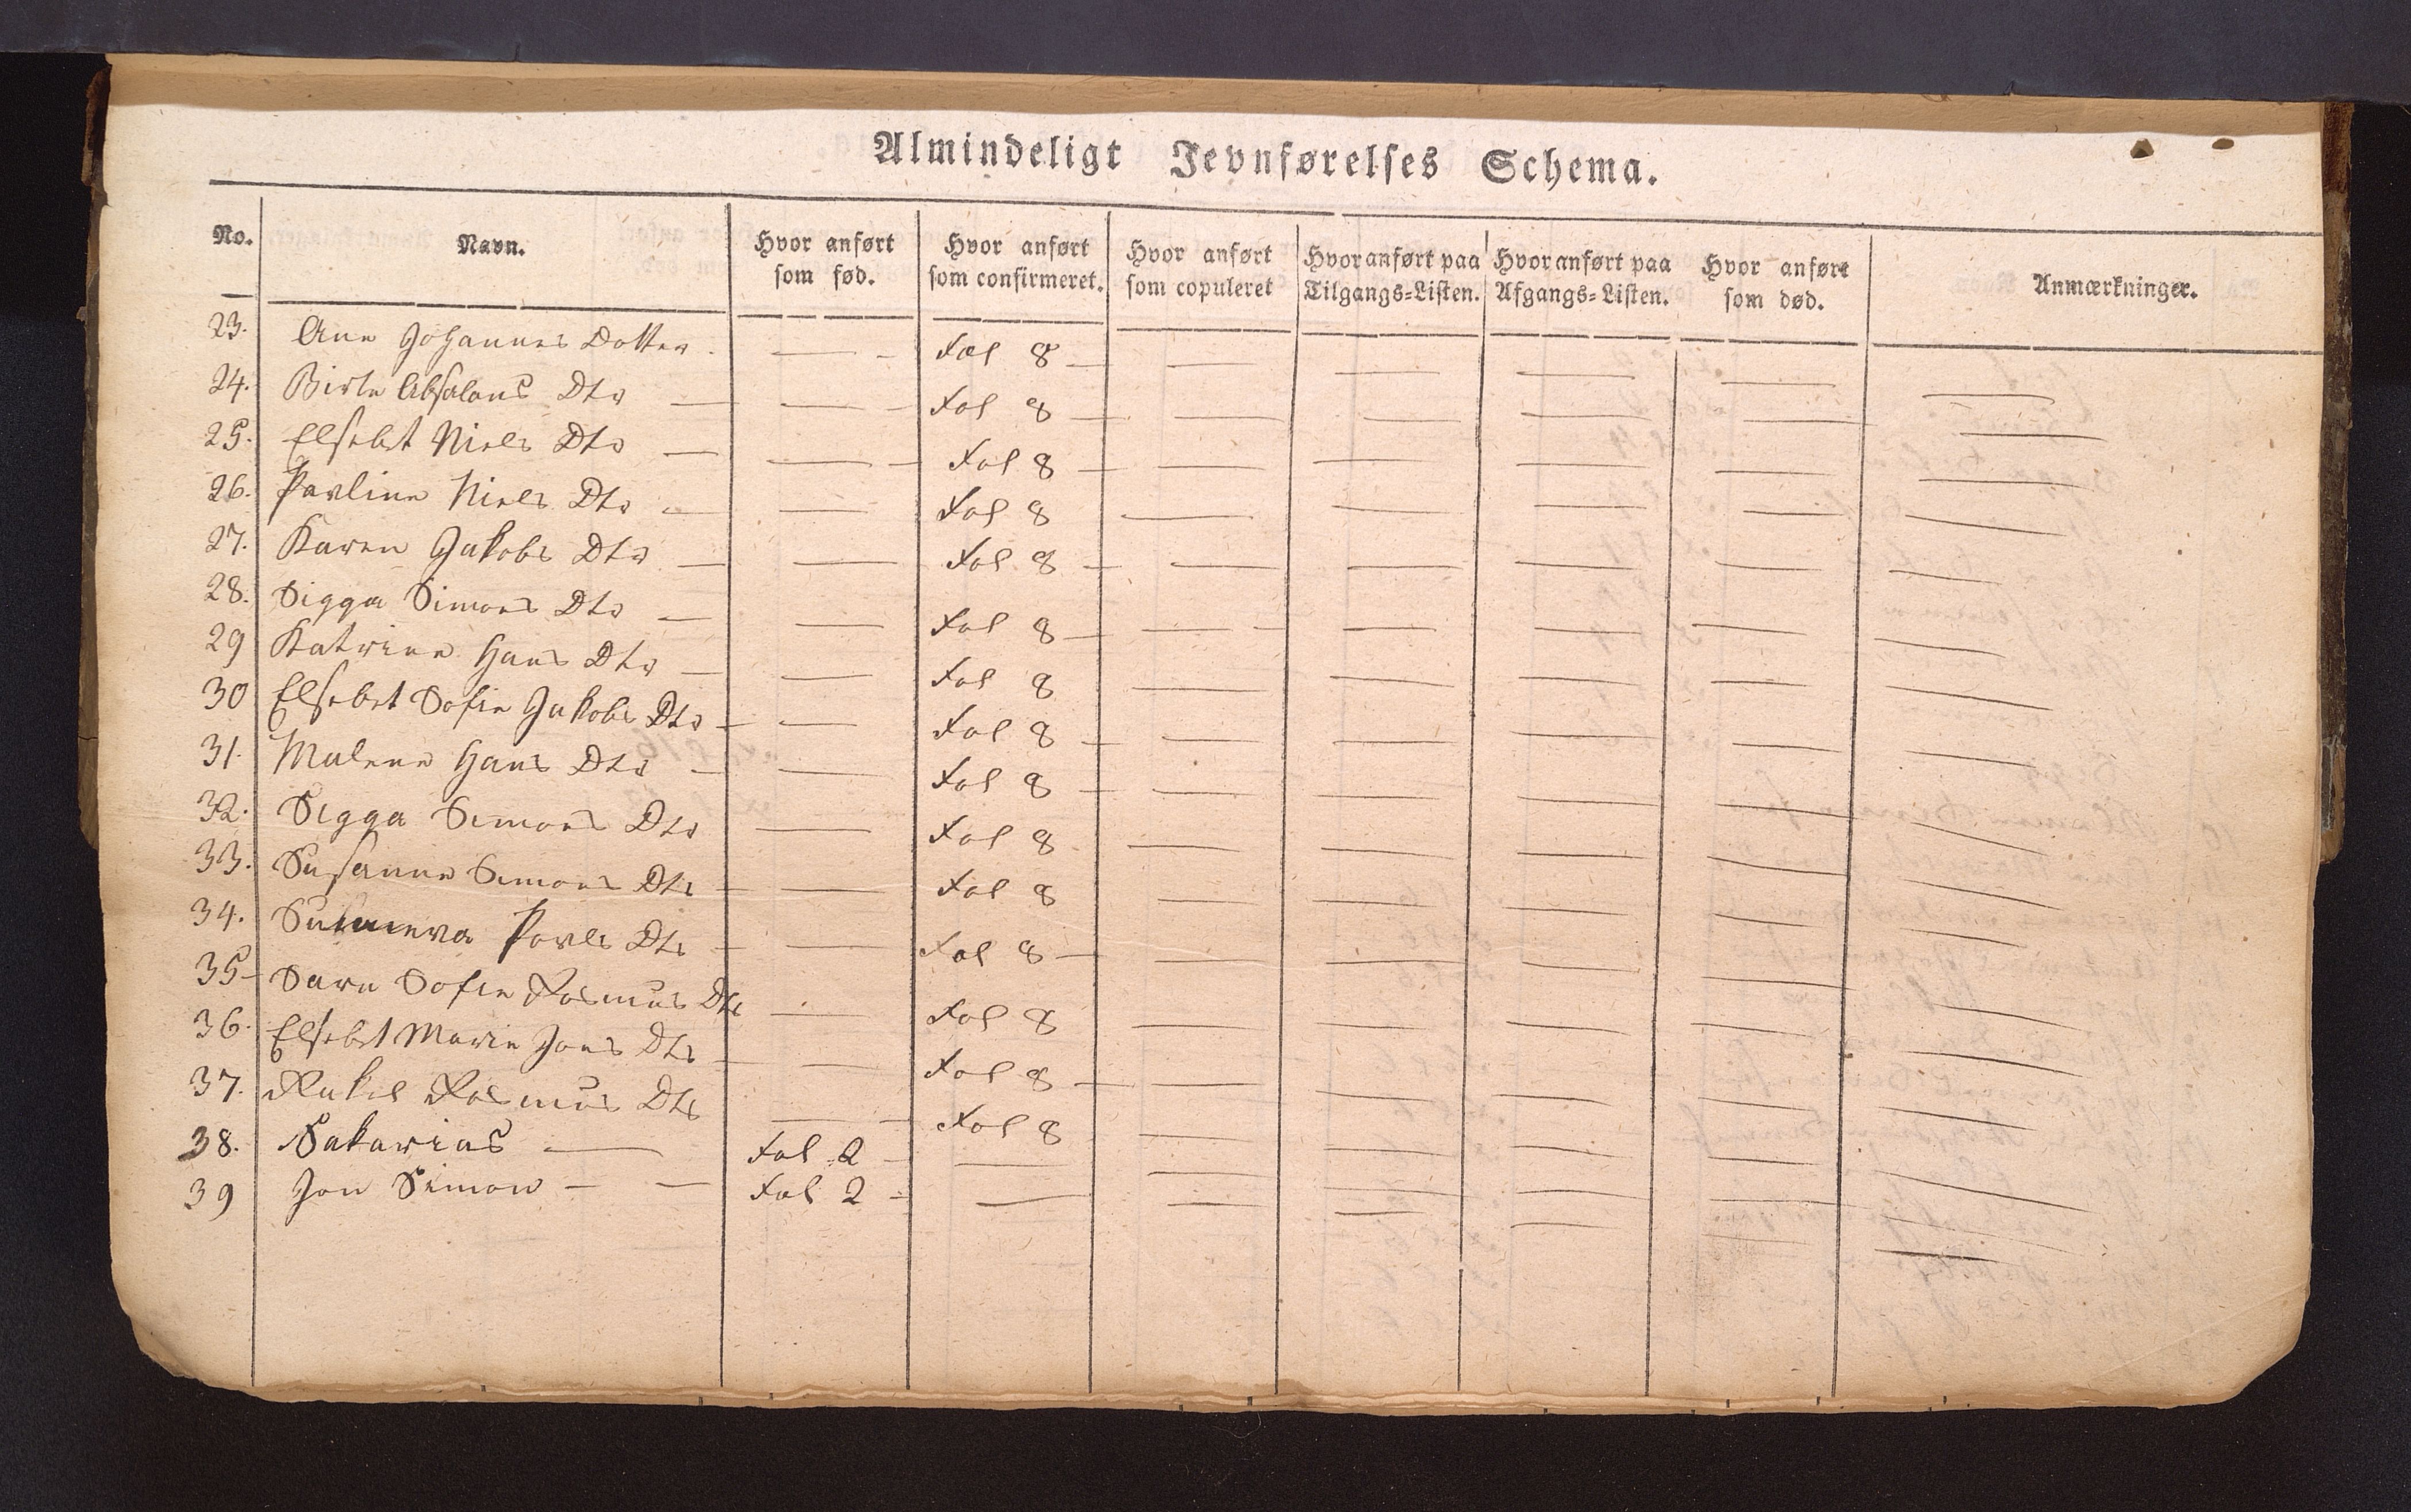 Almindeligt Jevnførelses Schema.
No. Navn. Hvor anført som fød. Hvor anført som confirmeret. Hvor anført som copuleret Hvor anført paa Tilgangs-Listen. Hvor anført paa Afgangs-Listen. Hvor anført som død. Anmærkninger.
23. Ane Johannes Dotter. — - Fol 8 — — — — — —
24. Birte Absalons Dtr — — - Fol 8 — — — — — —
25. Elsebet Niels Dtr — — - Fol 8 — — — — — —
26. Pavline Niels Dtr — — Fol 8 — — — — —
27. Karen Jakobs Dtr — — Fol 8 — — — — — —
28. Sigga Simons Dtr — — Fol 8 — — - — — — —
29 Katrine Hans Dtr — — Fol 8 — — — — —
30 Elsebet Sofie Jakobs Dtr — — Fol 8 — — — — — —
31. Malene Hans Dtr — — Fol 8 — — — — — —
32. Sigga Simons Dtr — Fol 8 — — — — —
33. Susanne Simons Dtr — — Fol 8 — — — — —
34. Povls Dtr — — Fol 8 — — — — — —
35- Sara Sofie Rasmus Dtr — Fol 8 — — — — —
36. Elsebet Marie Jons Dtr — — Fol 8 — — — — — —
37. Rakel Rasmus Dtr — - Fol 8 — — — — —
38. Sakarias — Fol 2 - — — — — — —
39 Jon Simon — — Fol 2 - — — — — — —